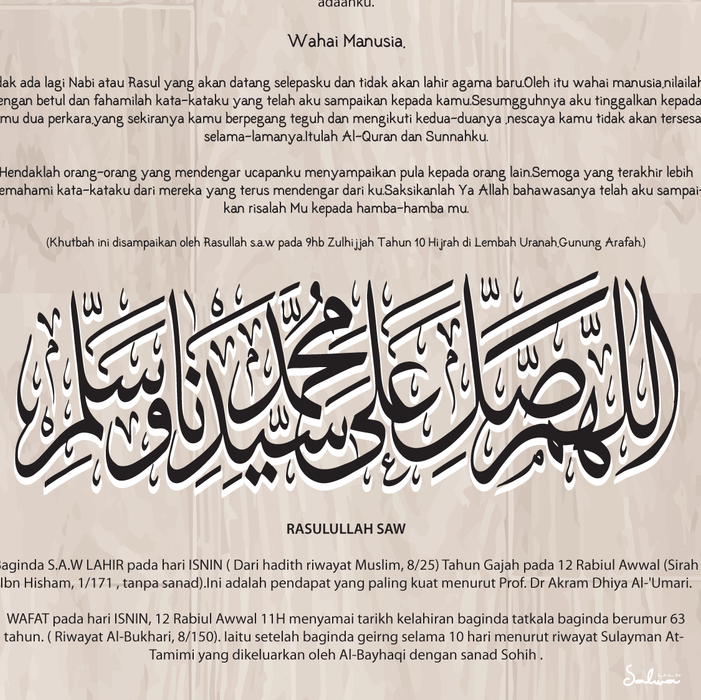 adaanku.
Wahai Manusia,
dak ada lagi Nabi atau Rasul yang akan datang selepasku dan tidak akan lahir agama baru.Oleh itu wahai manusia,nilailah
engan betul dan fahamilah kata-kataku yang telah aku sampaikan kepada kamu.Sesumgguhnya aku tinggalkan kepada
mu dua perkara,yang sekiranya kamu berpegang teguh dan mengikuti kedua-duanya ,nescaya kamu tidak akan tersesa
selama-lamanya.Itulah Al-Quran dan Sunnahku.
Hendaklah orang-orang yang mendengar ucapanku menyampaikan pula kepada orang lain.Semoga yang terakhir lebih
emahami kata-kataku dari mereka yang terus mendengar dari ku.Saksikanlah Ya Allah bahawasanya telah aku sampai-
kan risalah Mu kepada hamba-hamba mu.
(Khutbah ini disampaikan oleh Rasullah s.a.w pada 9hb Zulhijjah Tahun 10 Hijrah di Lembah Uranah,Gunung Arafah.)
اللهم صل على سيدنا محمد وسلم
RASULULLAH SAW
Baginda S.A.W LAHIR pada hari ISNIN ( Dari hadith riwayat Muslim, 8/25) Tahun Gajah pada 12 Rabiul Awwal (Sirah
Ibn Hisham, 1/171 , tanpa sanad).Ini adalah pendapat yang paling kuat menurut Prof. Dr Akram Dhiya Al-'Umari.
WAFAT pada hari ISNIN, 12 Rabiul Awwal 11H menyamai tarikh kelahiran baginda tatkala baginda berumur 63
tahun. ( Riwayat Al-Bukhari, 8/150). Iaitu setelah baginda geirng selama 10 hari menurut riwayat Sulayman At-
Tamimi yang dikeluarkan oleh Al-Bayhaqi dengan sanad Sohih .
Salwa